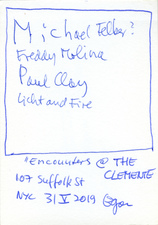 Michael Felber?
Freddy Molina
Paul Clay
Licht and Fire
"Encounters @ THE
CLEMENTE
107 Suffolk St
NYC 31 V 2019